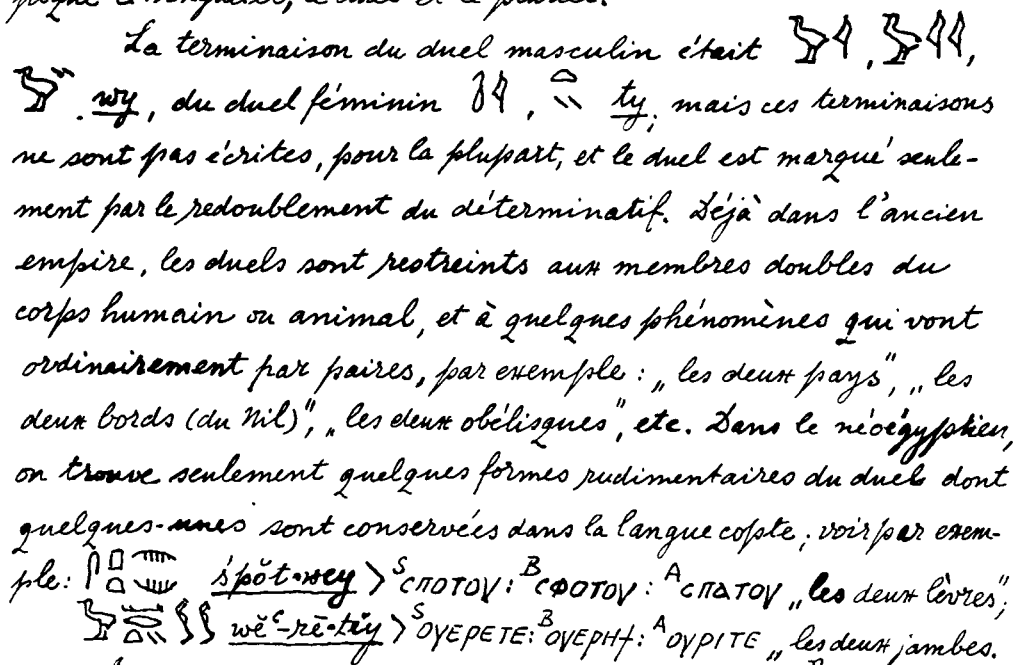 La terminaison du duel masculin était 𓅱𓇋, 𓅱𓇋𓇋,
𓅱𓏭. wy, du duel féminin , 𓏏𓏭 ty; mais ces terminaisons
ne sont pas écrites, pour la plupart, et le duel est marqué seule-
ment par le redoublement du déterminatif. Déjà dans l'ancien
empire, les duels sont restreints aux membres doubles du
corps humain ou animal, et à quelques phénomènes qui vont
ordinairement par paires, par exemple : „les deux pays", „les
deux bords (du Nil)", „les deux obélisques", etc. Dans le néoégyptien,
on trouve seulement quelques formes rudimentaires du duel dont
quelques-unes sont conservées dans la langue copte; voir par exem-
ple: śpŏt-wey > ˢⲥⲡⲟⲧⲟⲩ: ᴮⲥⲫⲟⲧⲟⲩ: ᴬⲥⲡⲁⲧⲟⲩ „les deux lèvres";
wĕᶜ-rē-tĕy > ˢⲟⲩⲉⲣⲉⲧⲉ: ᴮⲟⲩⲉⲣⲏϯ: ᴬⲟⲩⲣⲓⲧⲉ „les deux jambes.